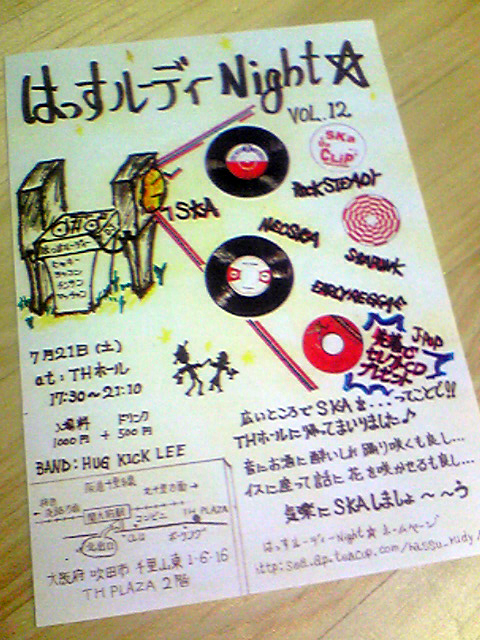 はっすルーディ Night☆
VOL.12
SKA
CLIP
ROCK STEADY
SKA
NEO SKA
SKA PUNK
EARLY REGGAE
J POP
先着で
セレクトCD
プレゼント
7月21日(土)
at:THホール
17:30～21:10
入場料 ドリンク
1000円 + 500円
BAND: HUG KICK LEE
広いところでSKAを...ってことで!!
THホールに帰ってまいりました♪
音にお酒に酔いしれ踊り咲くも良し...
イスに座って話に花を咲かせるも良し...
気楽にSKAしましょ～～う
はっすルーディーNight☆ホームページ
関大前駅
コンビニ
TH PLAZA
北出口
ボーリング
大阪府吹田市千里山東1-6-16
TH PLAZA 2階